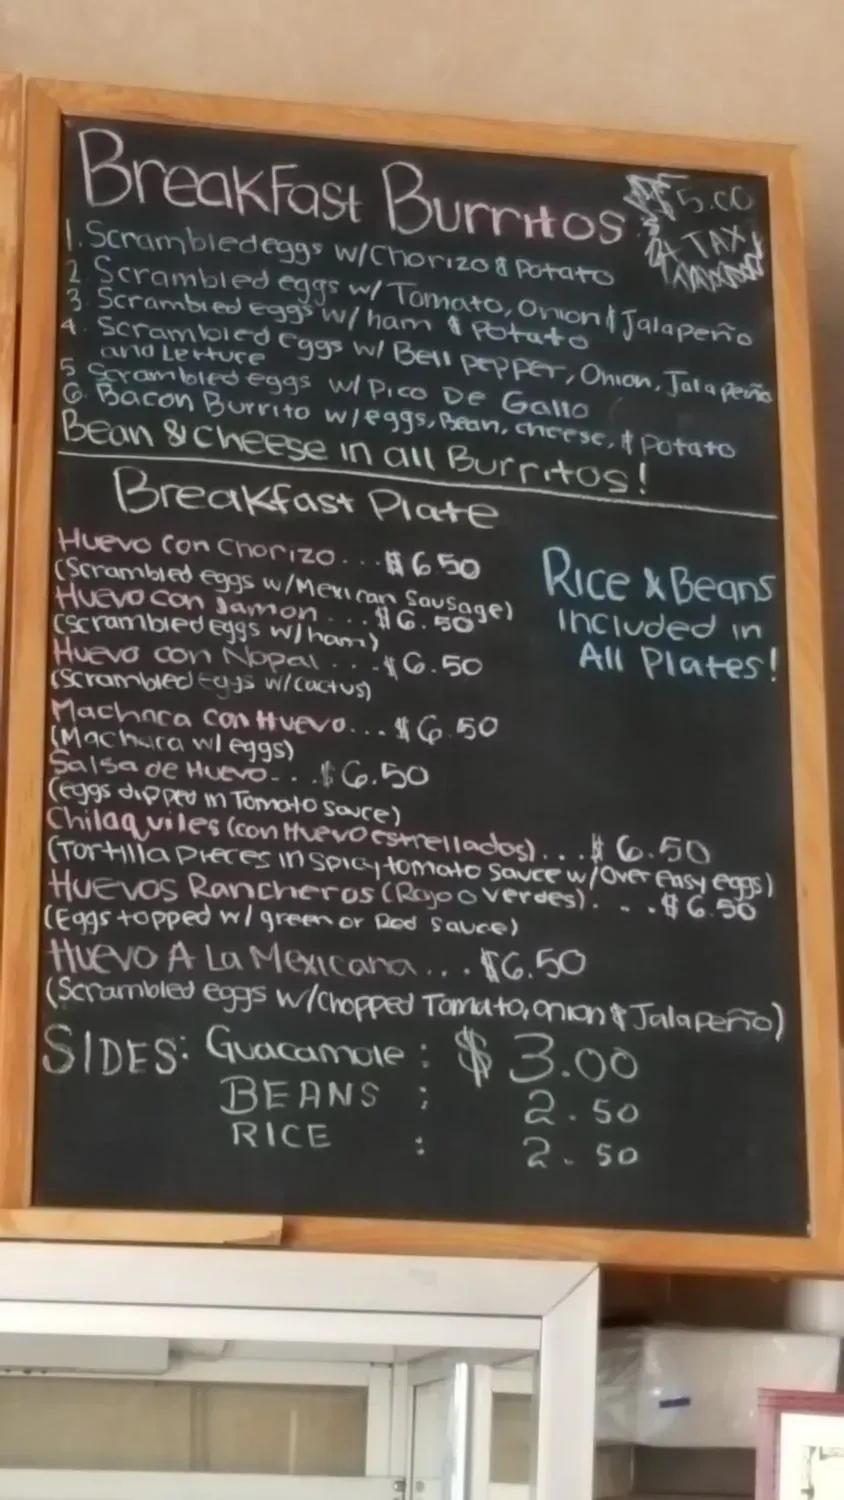 Breakfast Burritos
$5.00
+ TAX
1. Scrambled eggs w/Chorizo & Potato
2. Scrambled eggs w/ Tomato, Onion & Jalapeño
3. Scrambled eggs w/ ham & Potato
4. Scrambled eggs w/ Bell pepper, Onion, Jalapeño
and Lettuce
5. Scrambled eggs w/ Pico De Gallo
6. Bacon Burrito w/eggs, Bean, cheese, & potato
Bean & Cheese in all Burritos!
Breakfast Plate
Huevo con Chorizo...$6.50
(Scrambled eggs w/Mexican Sausage)
Huevo con Jamon...$6.50
(Scrambled eggs w/ham)
Huevo con Nopal...$6.50
(Scrambled eggs w/cactus)
Rice & Beans
Included in
All Plates!
Machaca con Huevo...$6.50
(Machaca w/ eggs)
Salsa de Huevo...$6.50
(eggs dipped in Tomato sauce)
Chilaquiles (con Huevo estrellados)...$6.50
(Tortilla pieces in spicy tomato sauce w/Over easy eggs)
Huevos Rancheros (Rojo o Verdes)...$6.50
(Eggs topped w/ green or Red sauce)
Huevo A La Mexicana...$6.50
(Scrambled eggs w/chopped Tomato, onion & Jalapeño)
SIDES: Guacamole : $3.00
BEANS : 2.50
RICE : 2.50